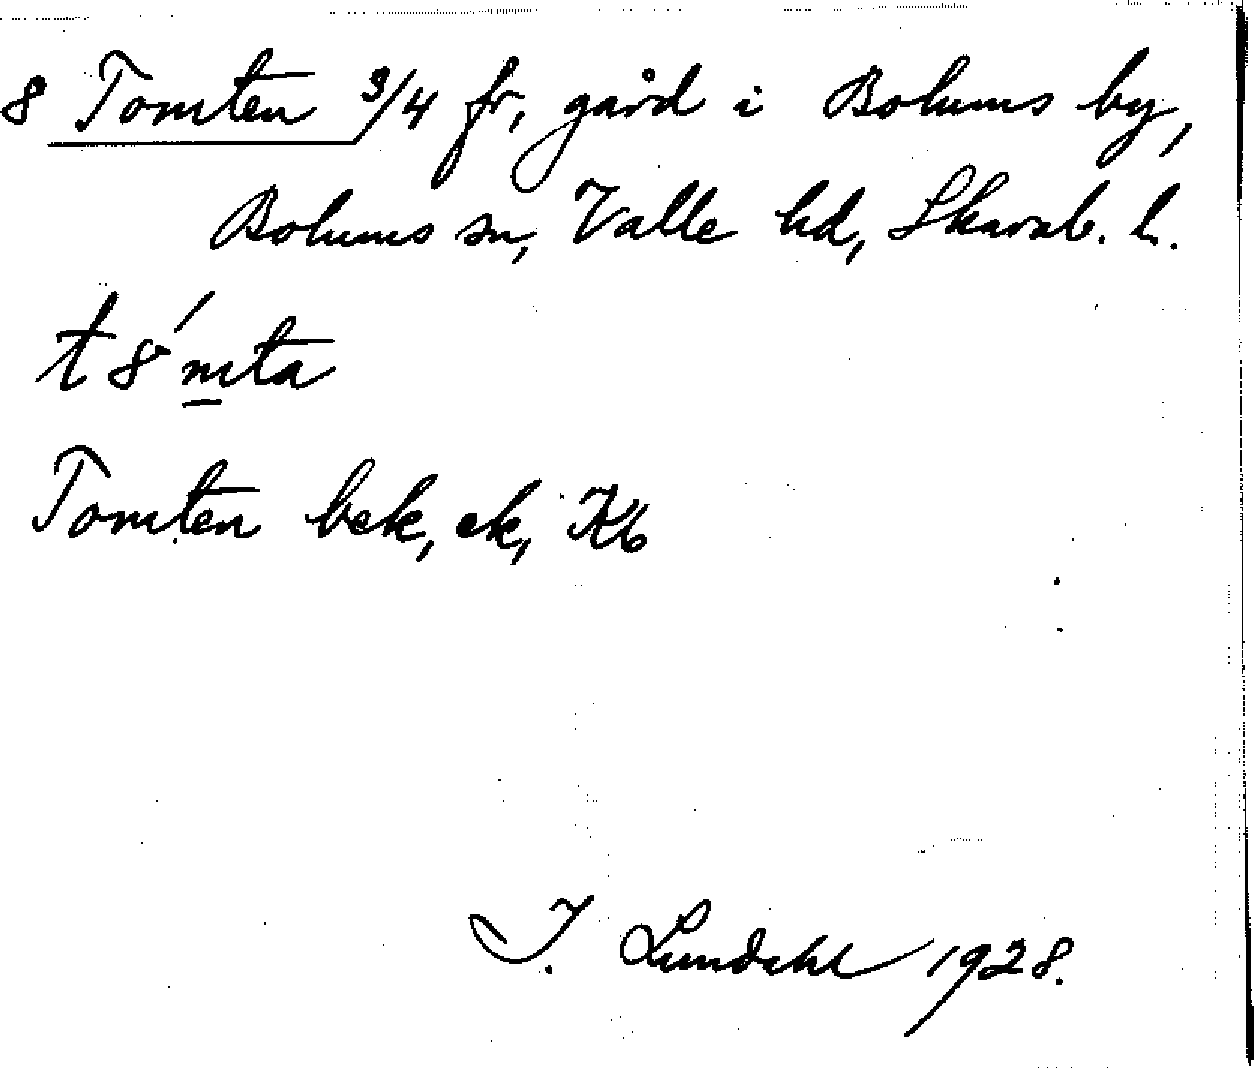 8 Tomten 3/4 fr, gård i Bolums by,
Bolums sn, Valle hd, Skarab. l.
t8́mta
Tomten bek, ek, Kb
I. Lundahl 1928.